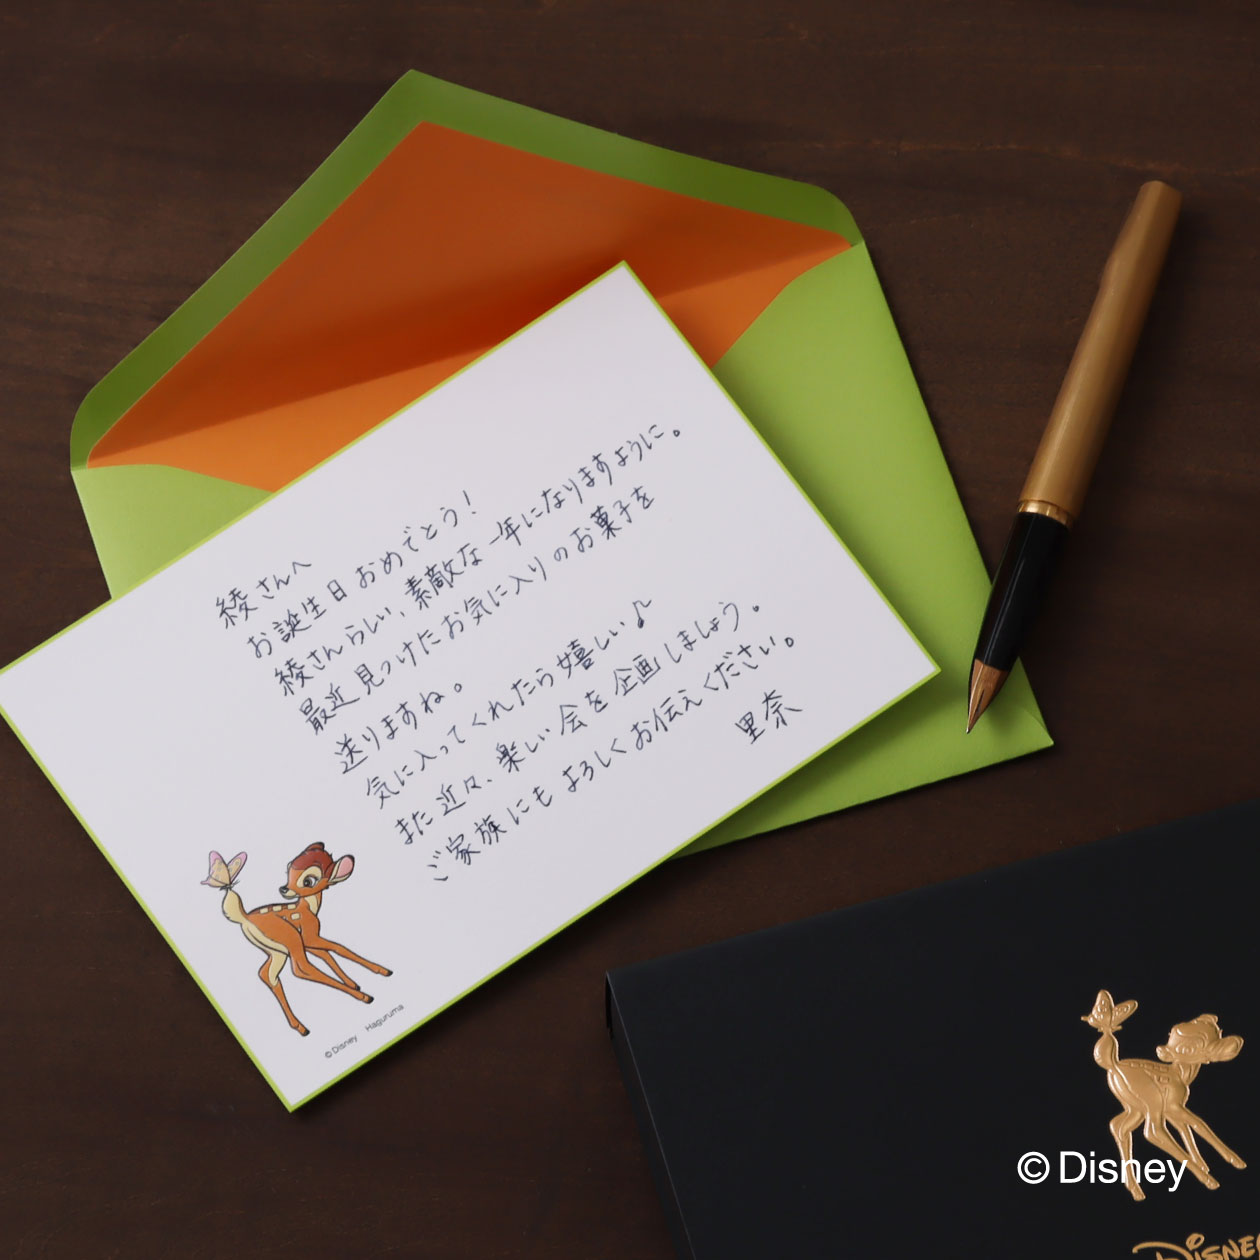 綾さんへ
お誕生日おめでとう！
綾さんらしい、素敵な一年になりますように。
最近見つけたお気に入りのお菓子を
送りますね。
気に入ってくれたら嬉しい♪
また近々、楽しい会を企画しましょう。
ご家族にもよろしくお伝えください。
里奈
© Disney Haguruma
© Disney
Disney